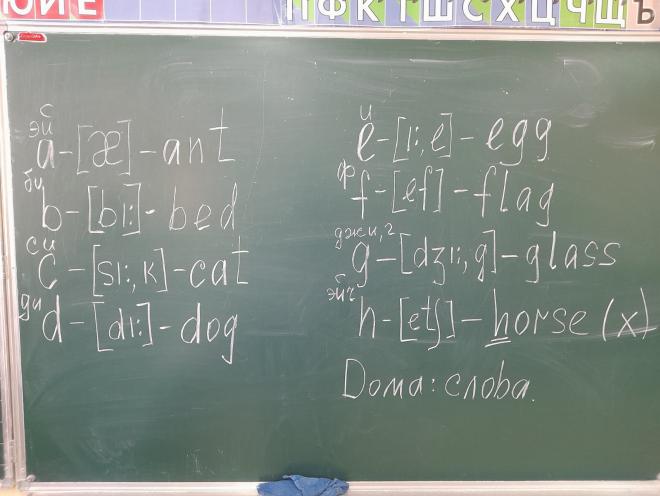 ЮИЕ
ПФКТШСХЦЧЩЪ
с
эй
a-[æ]-ant
би
b-[bı:]-bed
си
c-[sı:,k]-cat
ди
d-[dı:]-dog
и
e-[ı:,e]-egg
ф
f-[ef]-flag
джи,г
g-[dʒı:,g]-glass
эйч
h-[etʃ]-horse(х)
Дома: слова.